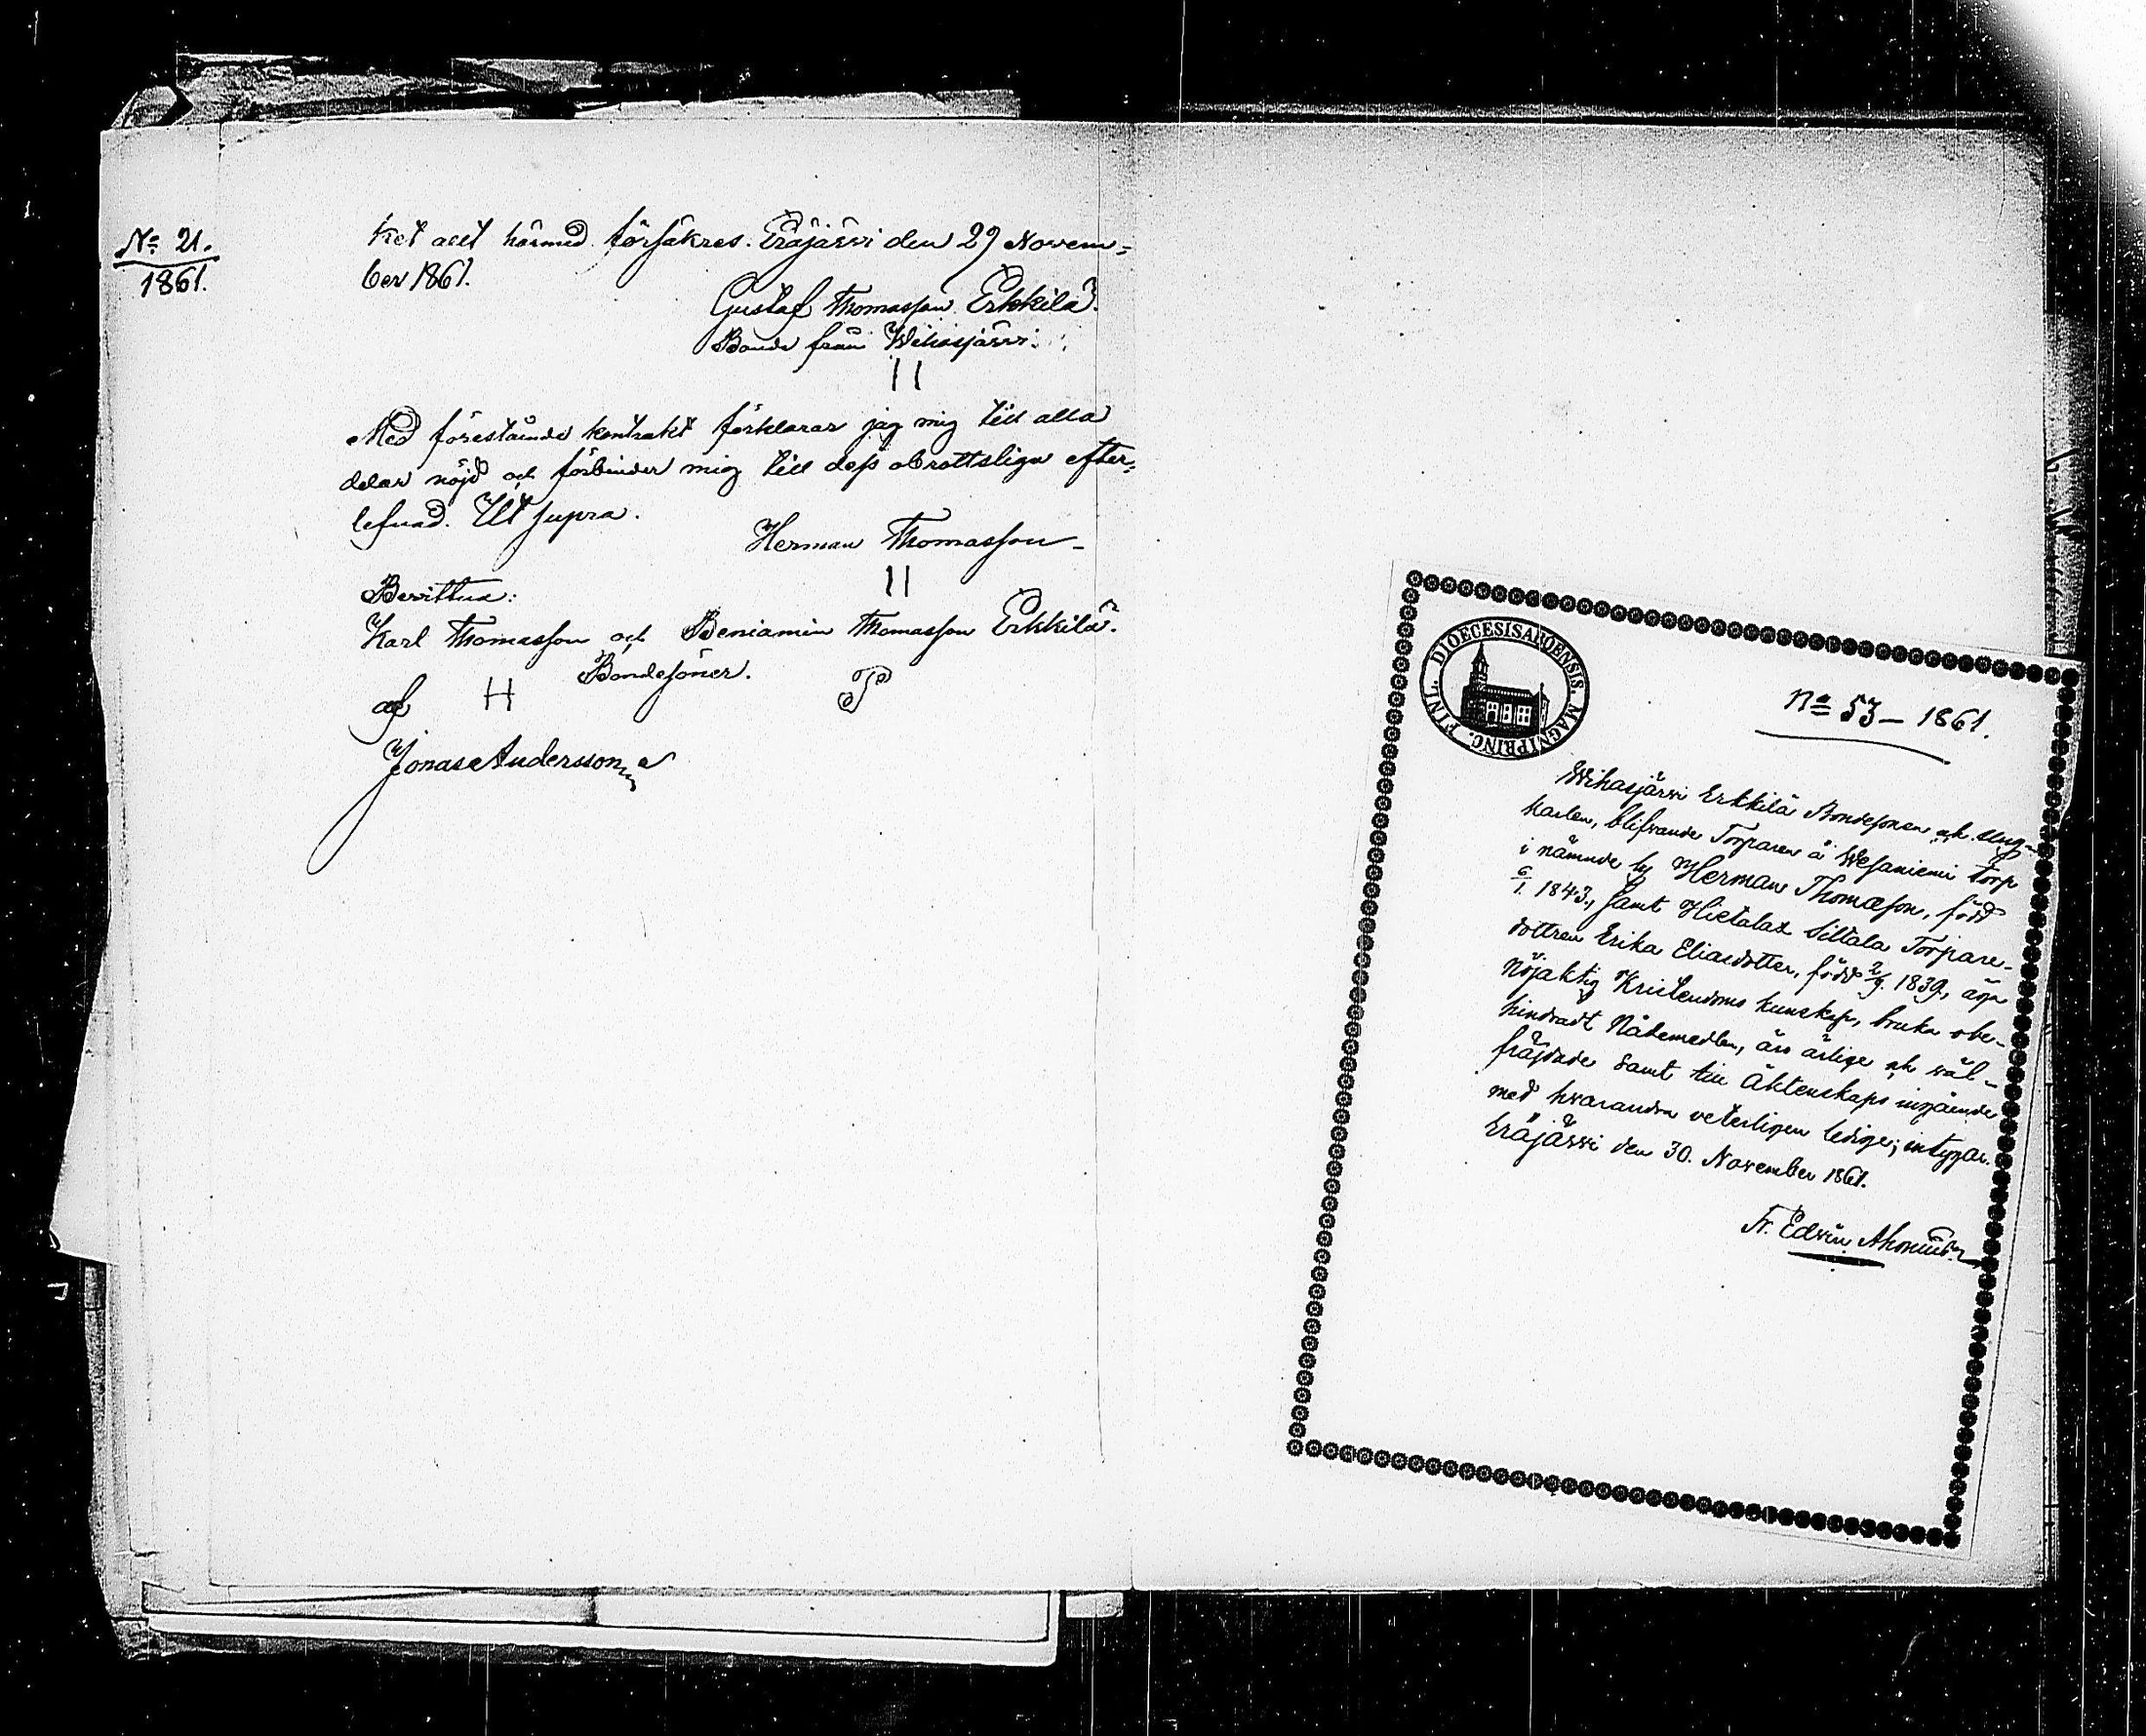 No 21.
1861.
ket allt härmed försäkres. Eräjärvi den 29 Novem=
ber 1861.
Gustaf Thomasson Erkkilä.
Bonde från Wihasjärvi.
Med förestående kontrakt förklarar jag mig till alla
delar nöjd och förbinder mig till dess obrottsliga efter=
lefnad. Ut supra.
Herman Thomasson
Bevittna:
Karl Thomasson och Beniamin Thomasson Erkkilä.
Bondesöner.
af
Jonas Andersson
FINL. DIOECESIS ABOENSIS. MAGNI PRINC.
No 53 – 1861.
Wihasjärvi Erkkilä Bondesonen och Ung-
karlen, blifvande Torparen å Wesaniemi torp
i nämnde by Herman Thomasson, född
6/1. 1843., samt Hietalax Siltala Torpare-
dottren Erika Eliasdotter, född 2/9. 1839., äga
nöjaktig Kristendoms kunskap, bruka obe-
hindradt Nådemedlen, äro ärlige och väl-
fräjdade samt till Äktenskaps ingående
med hvarandra veterligen ledige; intygar.
Eräjärvi den 30. November 1861.
Fr. Edvin